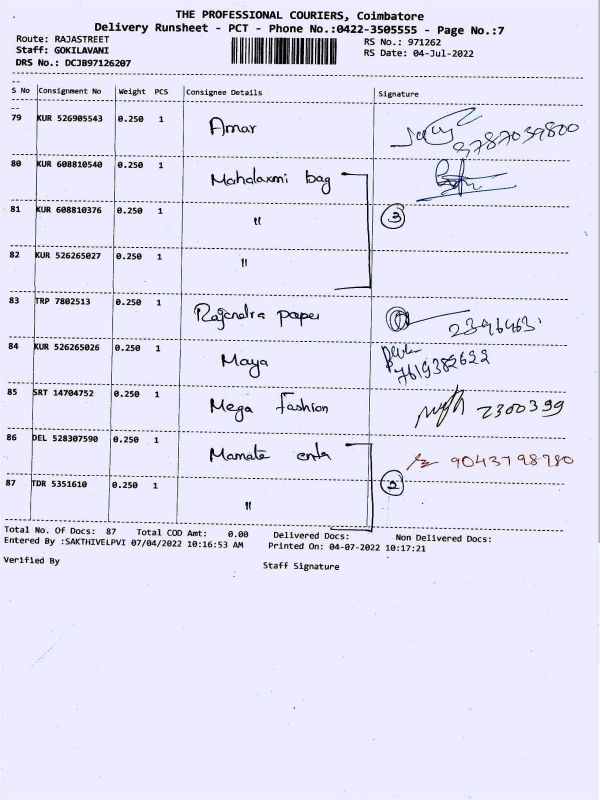 THE PROFESSIONAL COURIERS, Coimbatore
Delivery Runsheet - PCT - Phone No.:0422-3505555 - Page No.:7
Route: RAJASTREET RS No.: 971262
Staff: GOKILAVANI RS Date: 04-Jul-2022
DRS No.: DCJB97126207
S No Consignment No Weight PCS Consignee Details Signature
79 KUR 526905543 0.250 1 Amar 9787039800
80 KUR 608810540 0.250 1 Mahalaxmi bag
81 KUR 608810376 0.250 1 " 3
82 KUR 526265027 0.250 1 "
83 TRP 7802513 0.250 1 Rajendra paper 2396463
84 KUR 526265026 0.250 1 Maya 7619382622
85 SRT 14704752 0.250 1 Mega fashion 2300399
86 DEL 528307590 0.250 1 Mamata 9043798980
87 TDR 5351610 0.250 1 " 2
Total No. Of Docs: 87 Total COD Amt: 0.00 Delivered Docs: Non Delivered Docs:
Entered By :SAKTHIVELPVI 07/04/2022 10:16:53 AM Printed On: 04-07-2022 10:17:21
Verified By Staff Signature